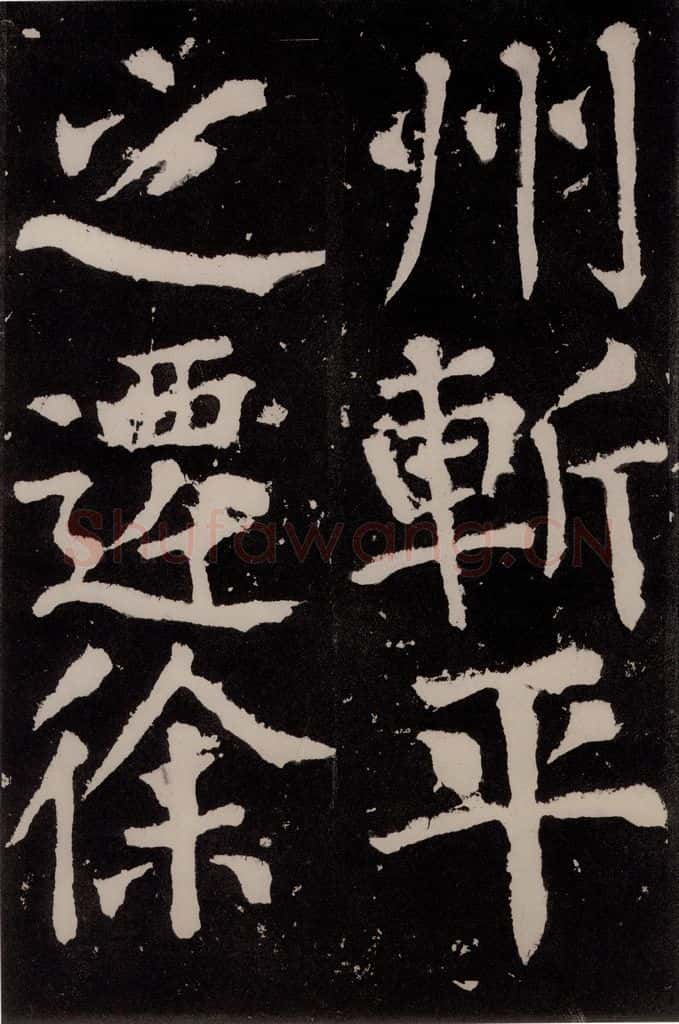 州斬平
之遷徐
Shufawang.CN